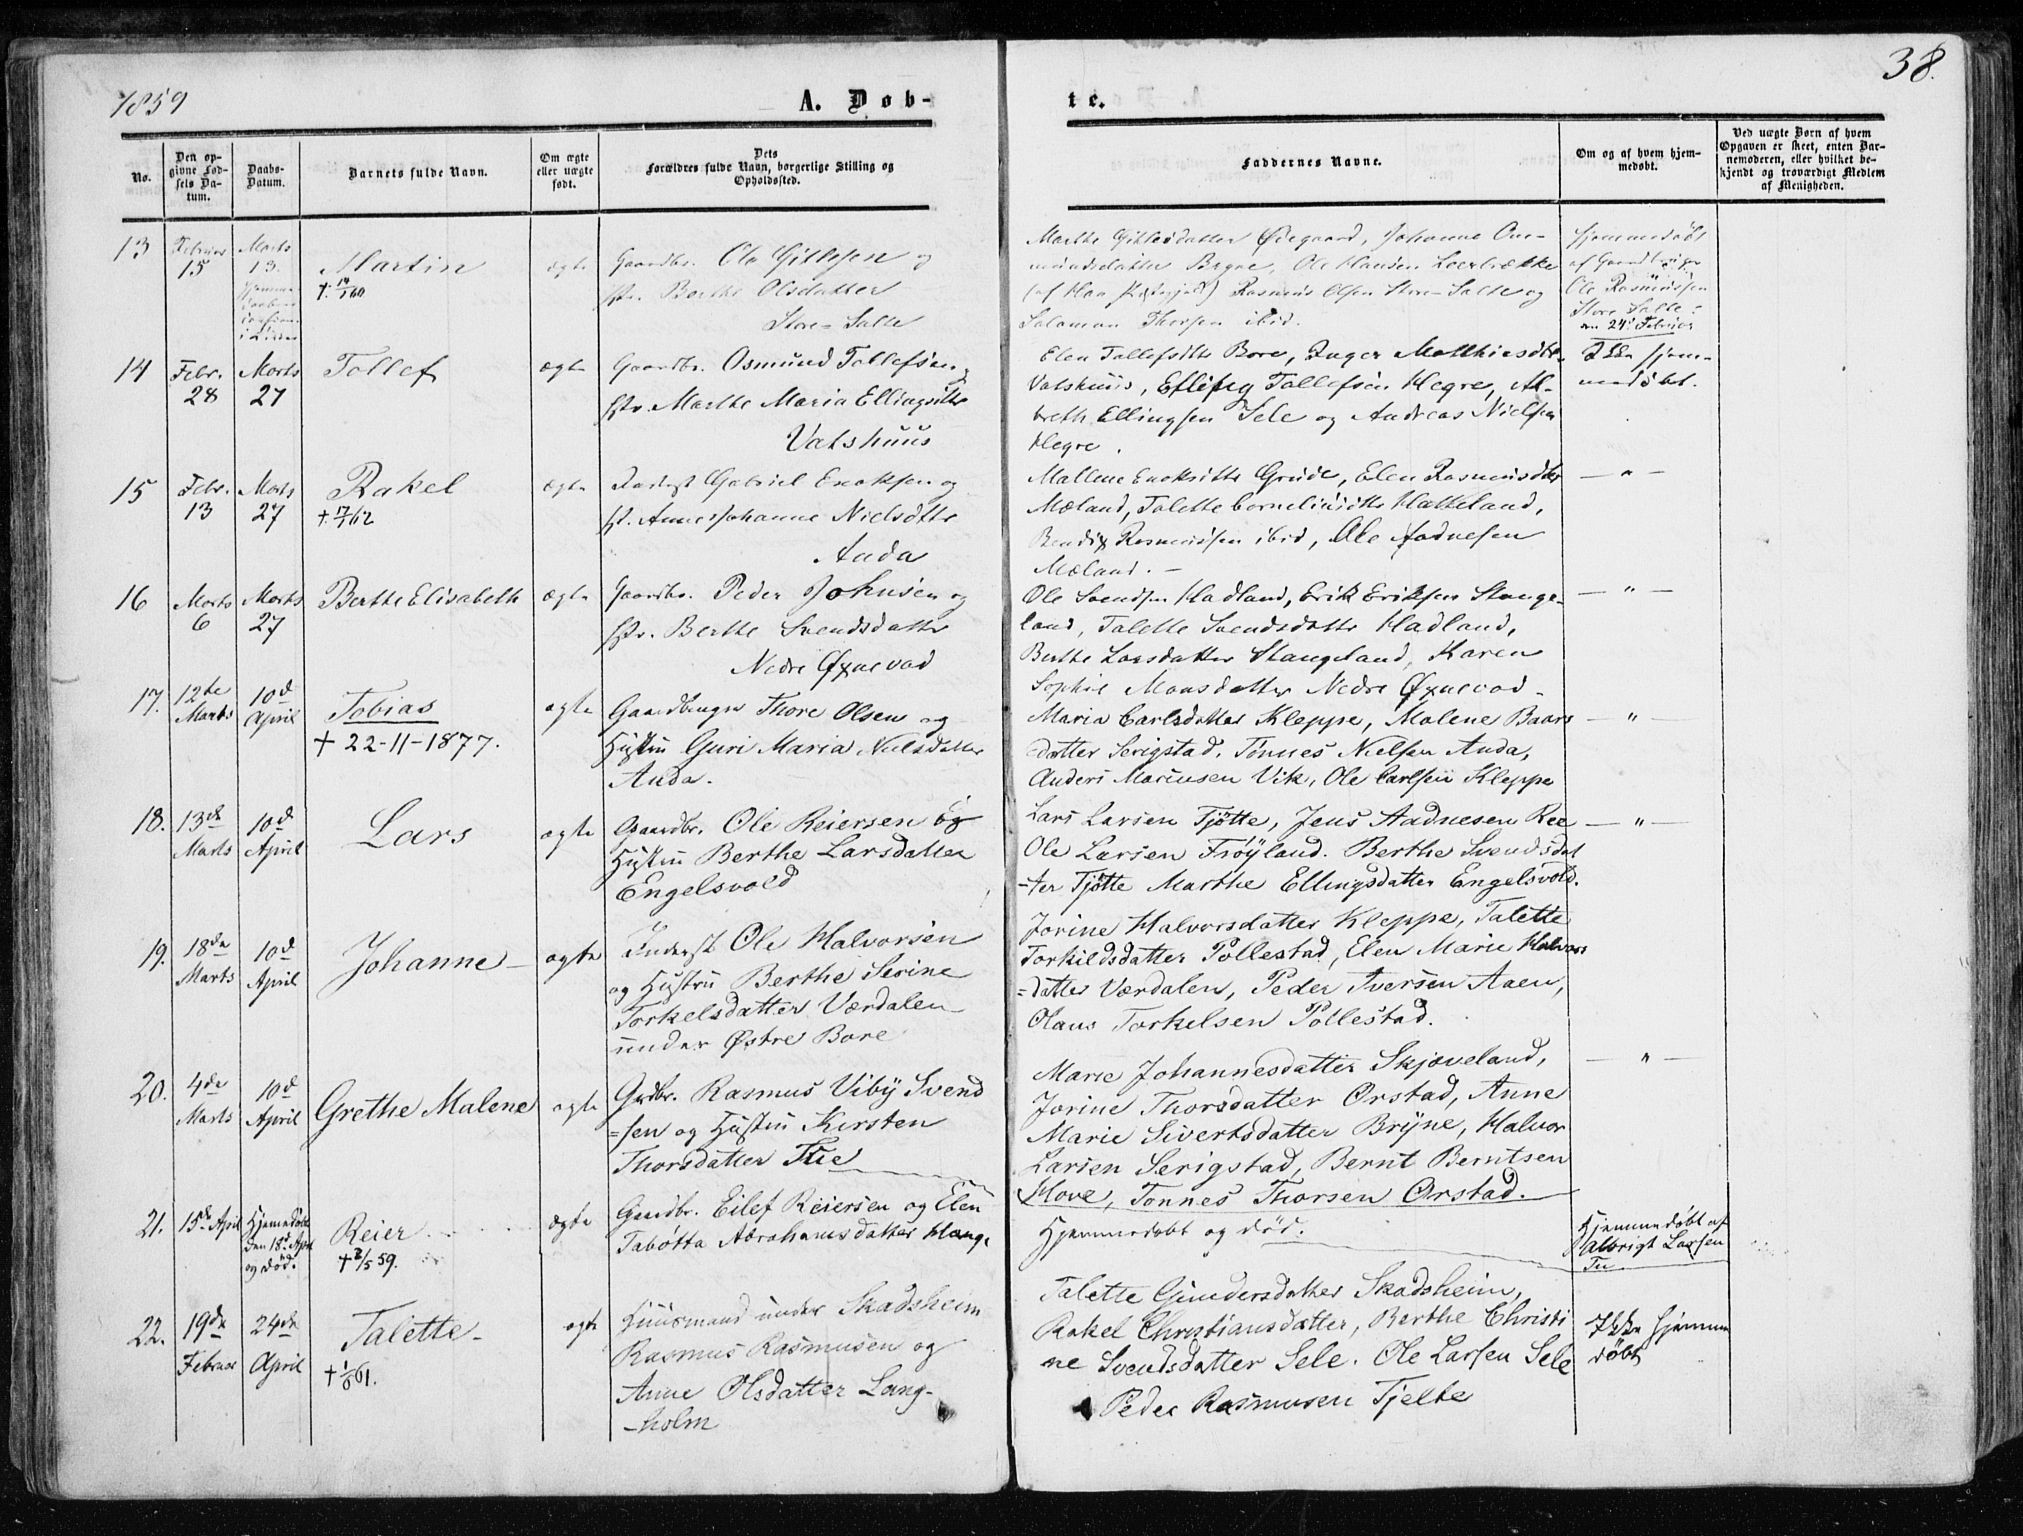 1859
A. Døb-
te.
38.
No.
Den op-
givne Fød-
sels Da-
tum.
Daabs-
Datum.
Barnets fulde Navn.
Om ægte
eller uægte
født.
Dets
Forældres fulde Navn, borgerlige Stilling og
Opholdssted.
Faddernes Navne.
Om og af hvem hjem-
medøbt.
Ved uægte Børn af hvem
Opgaven er skeet, enten Bar-
nemoderen, eller hvilket be-
kjendt og troværdigt Medlem
af Menigheden.
13
Februar
15
Marts
13.
Martin
ægte
Gaardbr. Ole Gittlesen og
Hstr. Berthe Olsdatter
Store-Salte
Marthe Gitlesdatter Ødegaard, Johanne
datter Bryne, Ole Hansen
Rasmus Olsen Store-Salte og
Salamon Thorsen ibid.
Hjemmedøbt
af Gaardbruger
Ole Rasmussen
Store Salte
den 24de Februar
14
Febr.
28
Marts
27
Tollef
ægte
Gaardbr. Osmund Tollefsen og
Hstr. Marthe Maria Ellingsdtr
Vatshuus
Elen Tollefsdtr Bore, Inger Matthiasdtr
Vatshuus, Elling Tollefsen Hegre, Al-
breth Ellingsen Sele og Andreas Nielsen
Hegre.
Ikke hjem-
medøbt.
15
Febr.
13
Marts
27
Rakel
† 17/1 62
ægte
Inderst Gabriel Enoksen og
H. Anne Johanne Nielsdtr
Anda
Mallene Enoksdtr Grude, Elen Rasmusdtr
Mæland, Talette Cornelius dtr Hatteland,
Bendix Rasmussen ibid, Ole Aadnesen
Mæland. -
— " —
16
Marts
6
Marts
27
Berthe Elisabeth
ægte
Gaardbr. Peder Johnsen og
Hstr. Berthe Svendsdatter
Nedre Øxnevad
Ole Svendsen Hadland, Erik Eriksen Stange-
land, Talette Svendsdatter Hadland,
Berthe Larsdatter Stangeland, Karen
Sophie Monsdatter Nedre Øxnevad -
— " —
17.
12te
Marts
10d
April
Tobias
† 22-11-1877.
ægte
Gaardbruger Thore Olsen og
Hustru Guri Maria Nielsdatter
Anda.
Maria Carlsdatter Kleppe, Malene Baars
datter Serigstad, Tønnes Nielsen Anda,
Anders Mariusen Vik, Ole Carlsen Kleppe
— " —
18.
13de
Marts
10d
April
Lars
ægte
Gaardbr. Ole Reiersen og
Hustru Berthe Larsdatter
Engelsvold
Lars Larsen Tjøtte, Jens Aadnesen Ree
Ole Larsen Frøyland. Berthe Svendsdat
-ter Tjøtte Marthe Ellingsdatter Engelsvold.
— " —
19.
18de
Marts
10d
April
Johanne
ægte
Inderst Ole Halvorsen
og Hustru Berthe Serine
Torkelsdatter Værdalen
under Østre Bore
Jorine Halvorsdatter Kleppe, Talette
Torkildsdatter Pollestad, Elen Marie Halvors
=datter Værdalen, Peder Iversen Aaen,
Olaus Torkelsen Pollestad.
20.
4de
Marts
10d
April
Grethe Malene
ægte
Grdbr. Rasmus Viby Svend
=sen og Hustru Kirsten
Thorsdatter Tue
Marie Johannesdatter Skjæveland,
Jorine Thorsdatter Orstad, Anne
Marie Sivertsdatter Bryne, Halvor
Larsen Serigstad, Bernt Berntsen
Hove, Tonnes Thorsen Orstad.
— " —
21.
15de April
Hjemmedøbt
den 18de April
og død.
Reier
† 2/5 59.
ægte
Gaardbr. Eilef Reiersen og Elen
Tabøtta Abrahamsdatter Hauge
Hjemmedøbt og død.
Hjemmedøbt af
Albrigt Larsen
Tu
22.
19de
Februar
24de
April
Talette
ægte
Huusmand under Skadsheim
Rasmus Rasmusen og
Anne Olsdatter Lang-
-holm
Talette Gundersdatter Skadsheim,
Rakel Christiansdatter, Berthe Christi
ne Svendsdatter Sele. Ole Larsen Sele
Peder Rasmusen Tjelte
Ikke hjemme
døbt